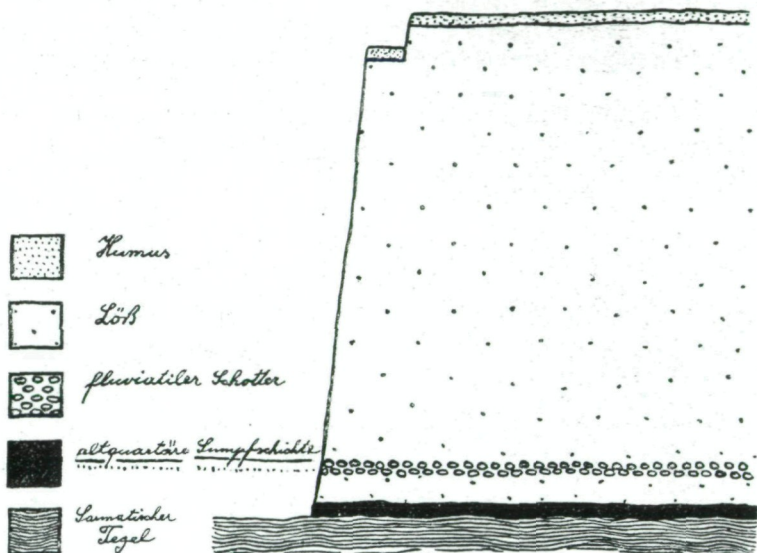 Humus
Löß
fluviatiler Schotter
altquartäre Sumpfschichte
Sarmatischer
Tegel